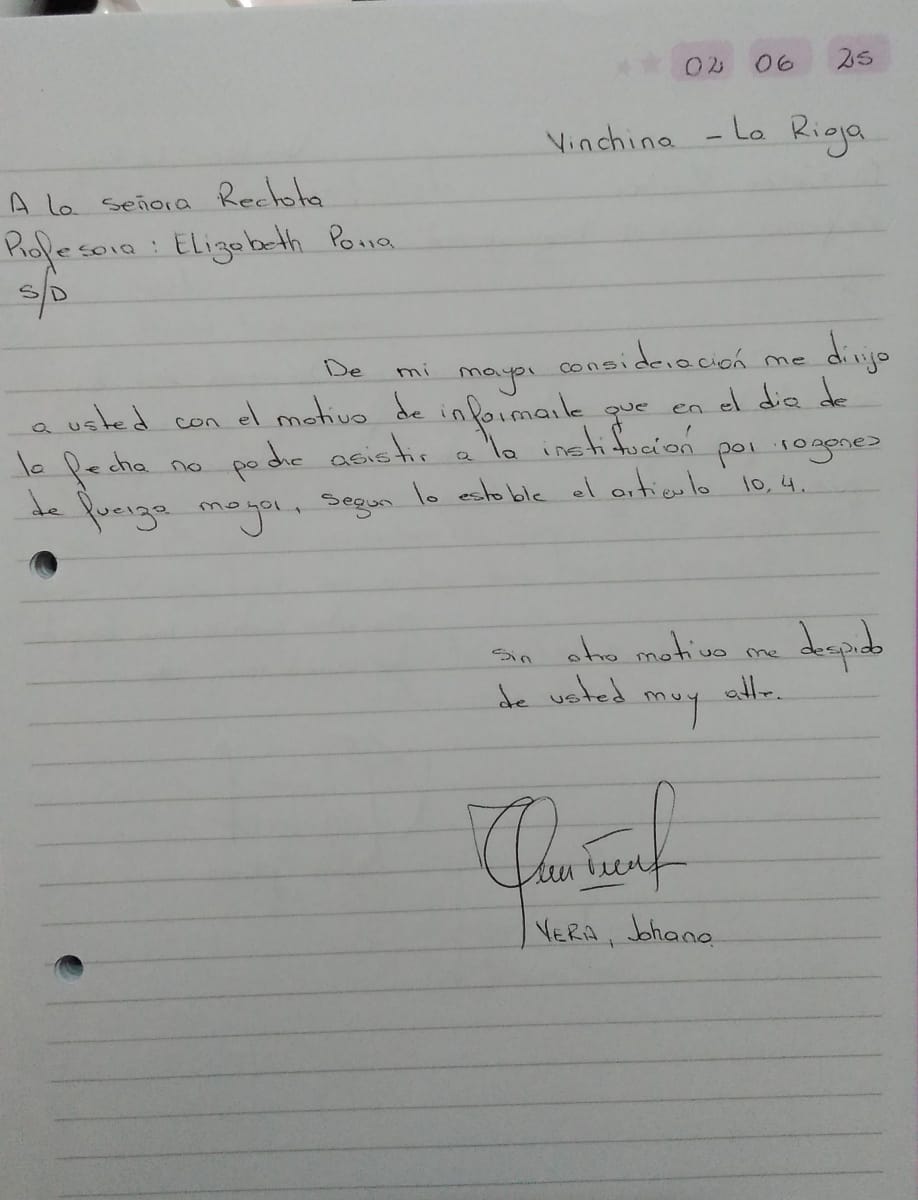 02 06 25
Vinchina - La Rioja
A la señora Rectora
Profesora: Elizabeth Porra
S/D
De mi mayor consideración me dirijo
a usted con el motivo de informarle que en el dia de
la fecha no podre asistir a la institución por razones
de fuerza mayor, segun lo estable el articulo 10,4.
Sin otro motivo me despido
de usted muy atte.
VERA, Johana